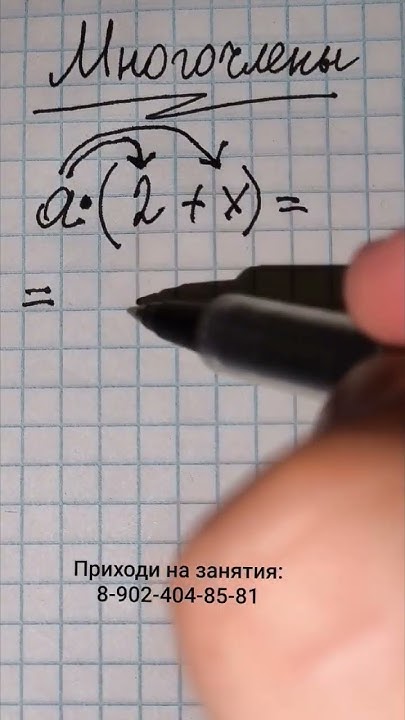 Многочлены
a·(2+x)=
=
Приходи на занятия:
8-902-404-85-81